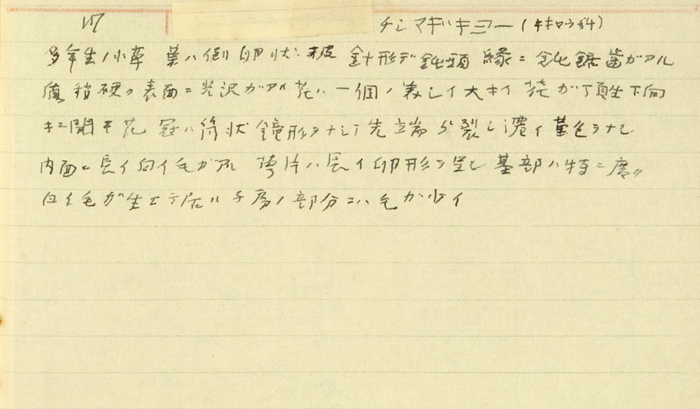 チシマギキヨー(キキョウ科)
多年生ノ小草 葉ハ倒卵状披針形デ鈍頭 縁ニ鈍鋸歯ガアル
質稍硬ク表面ニ光沢ガアル 花ハ一個ノ美シイ大キイ花ガ頂生下向
キニ開ク 花冠ハ筒状鐘形ヲナシテ先端分裂シ濃イ藍色ヲナシ
内面ニ長イ白イ毛ガアル 萼片ハ長イ卵形ヲ呈シ基部ハ特ニ廣ク
白イ毛ガ生エテ居ル子房ノ部分ニハ毛ガ少イ